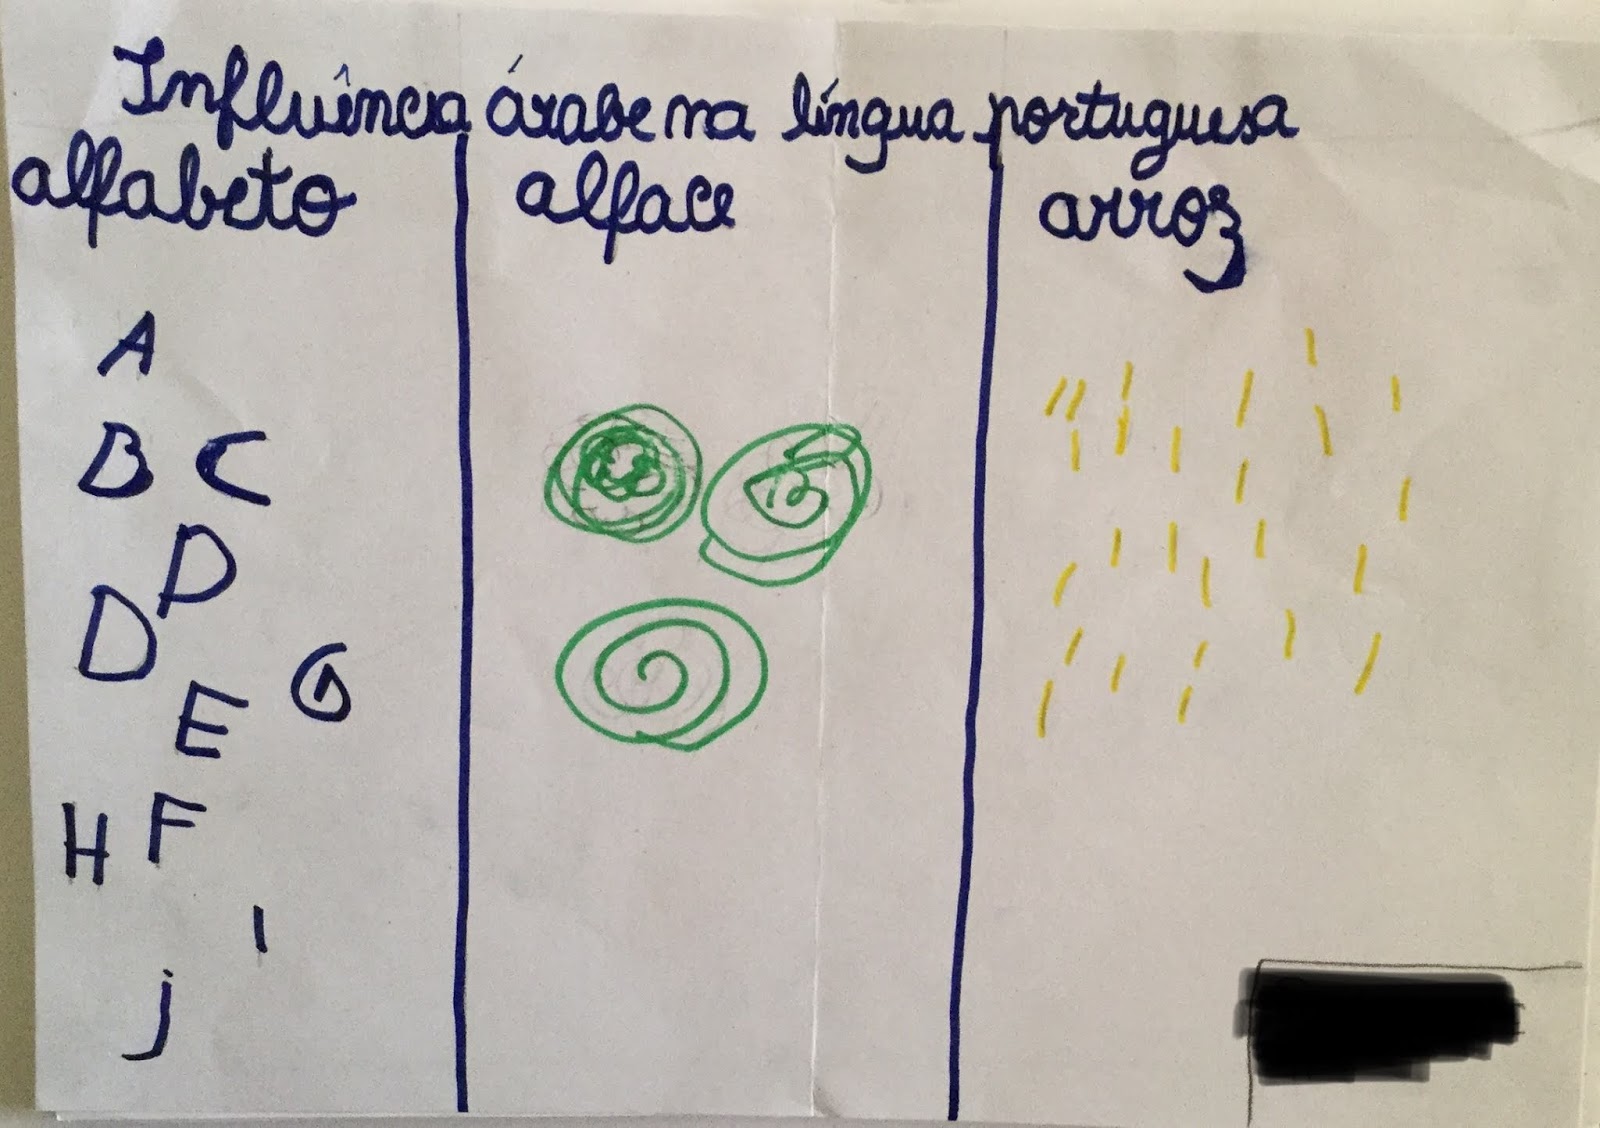 Influência árabe na língua portuguesa
alfabeto alface arroz
A
B C
D
D
G
E
H F
I
j